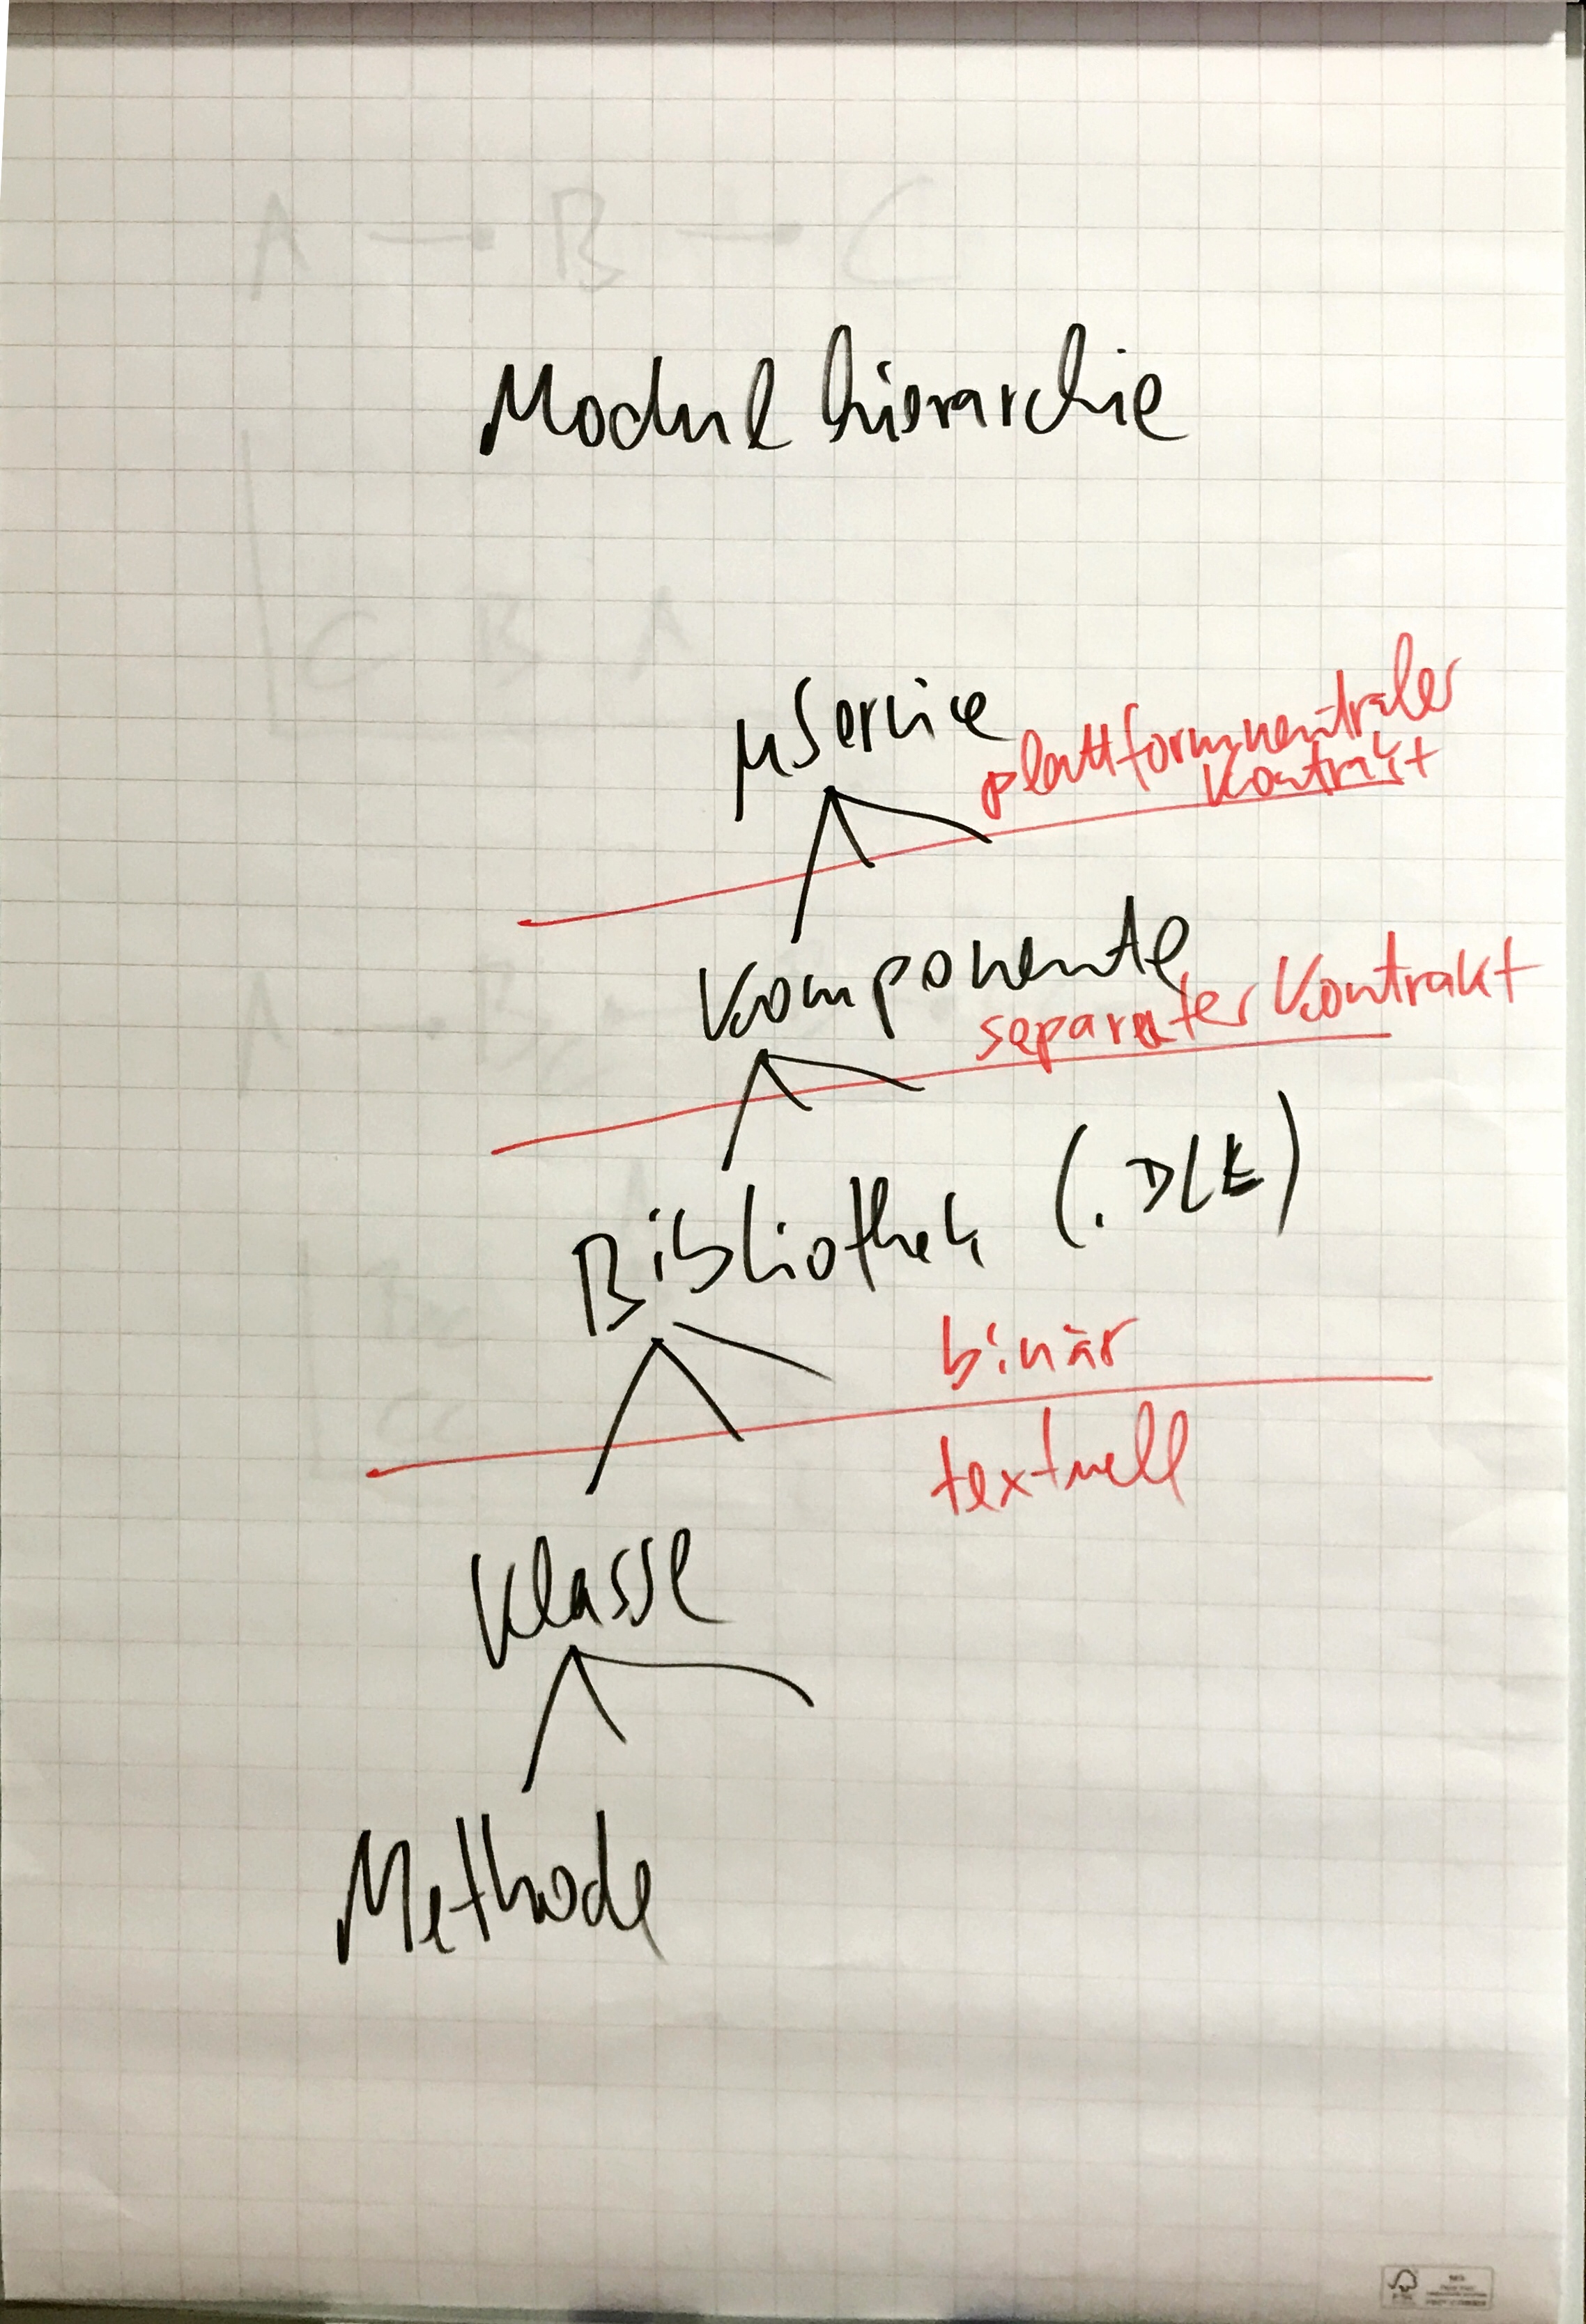 A → B → C
Modulhierarchie
C B A
µService
plattformneutraler
Kontrakt
Komponente
separater Kontrakt
Bibliothek (.DLL)
binär
textuell
Klasse
Methode